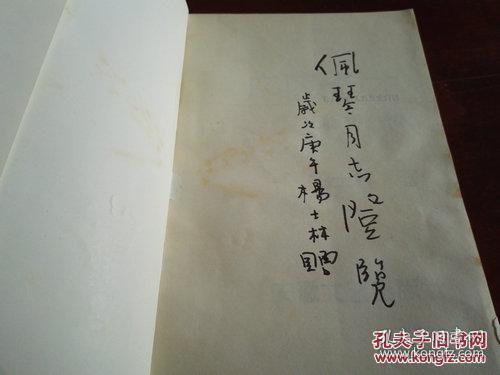 佩琴同志 览
歲次庚午 楊士林 贈
孔夫子旧书网
www.kongfz.com